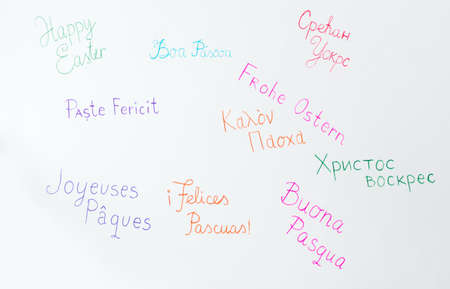 Happy
Easter
Boa Páscoa
Срећан
Ускрс
Frohe Ostern
Paşte Fericit
Καλόν
Πάσχα
Христос
воскрес
Joyeuses
Pâques
¡Felices
Pascuas!
Buona
Pasqua